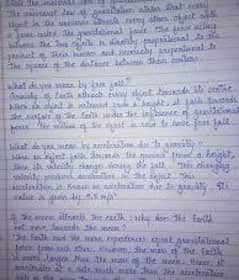 State the universal law of gravitation
The universal law of gravitation states that every
object in the universe attracts every other object with
a force called the gravitational force. The force acting
between the two objects is directly proportional to the
product of their masses and inversely proportional to
the square of the distance between their centres.
What do you mean by free fall?
Gravity of Earth attracts every object towards its centre.
When an object is released from a height, it falls towards
the surface of the Earth under the influence of gravitational
force. The motion of the object is said to have free fall.
What do you mean by acceleration due to gravity?
When an object falls towards the ground from a height,
then its velocity changes during the fall. This changing
velocity produces acceleration in the object. This
acceleration is known as acceleration due to gravity. Its
value is given by 9.8 m/s²
If the moon attracts the earth, why does the Earth
not move towards the moon?
The Earth and the moon experience equal gravitational
force from each other. However, the mass of the Earth
is more larger than the mass of the moon. Hence, it
accelerates at a rate much more than the acceleration